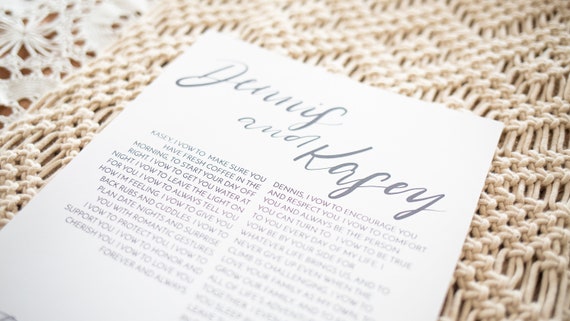 Dennis
and
Kasey
KASEY, I VOW TO MAKE SURE YOU
HAVE FRESH COFFEE IN THE
MORNING, TO START YOUR DAY OFF
RIGHT. I VOW TO GET YOU WATER AT
NIGHT. I VOW TO LEAVE THE LIGHT ON
FOR YOU. I VOW TO ALWAYS TELL YOU
HOW I'M FEELING. I VOW TO GIVE YOU
BACK RUBS AND CUDDLE. I VOW TO
PLAN DATE NIGHTS AND SURPRISE
YOU WITH ROMANTIC GESTURES.
I VOW TO PROTECT YOU. I VOW TO
SUPPORT YOU. I VOW TO HONOR AND
CHERISH YOU. I VOW TO LOVE YOU
FOREVER AND ALWAYS
DENNIS, I VOW TO ENCOURAGE YOU
AND RESPECT YOU. I VOW TO COMFORT
YOU AND ALWAYS BE THE PERSON
YOU CAN TURN TO. I VOW TO BE TRUE
TO YOU EVERY DAY OF MY LIFE. I
VOW BE BY YOUR SIDE FOR
WHATEVER LIFE BRINGS US, AND TO
NEVER GIVE UP EVEN WHEN THE
CLIMB IS CHALLENGING. I VOW TO
LOVE YOUR FAMILY AS MY OWN, TO
GROW OUR FAMILY, AND
ALL OF LIFE'S ADVENTURES